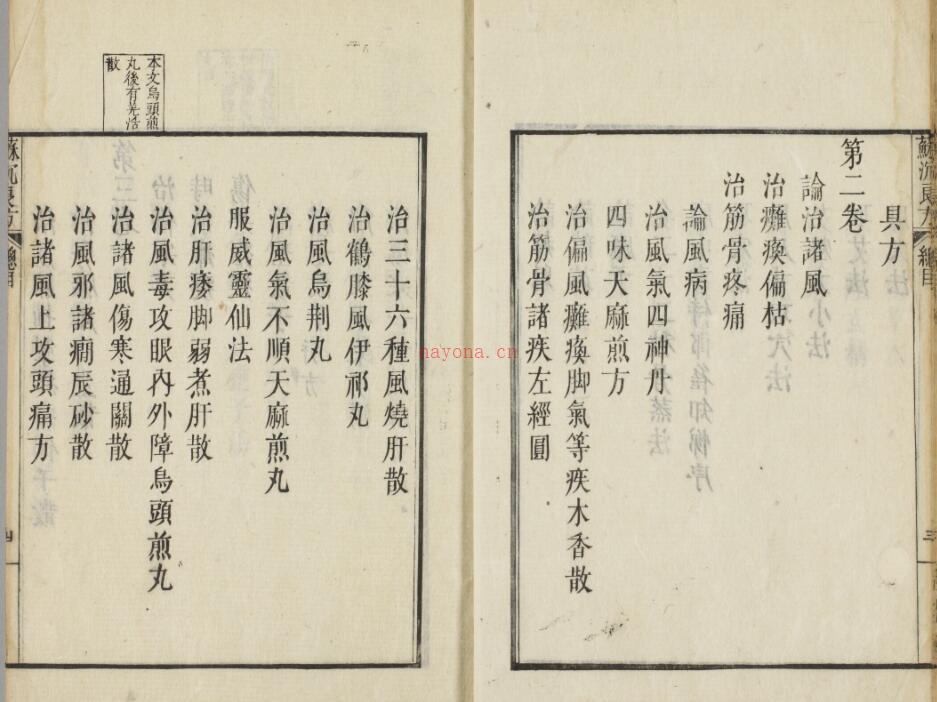 蘇沉良方
總目
三
具方
第二卷
論治諸風
治癱瘓偏枯
治筋骨疼痛
論風病
治風氣四神丹
四味天麻煎方
治偏風癱瘓脚氣等疾木香散
治筋骨諸疾左經圓
治三十六種風燒肝散
治鶴膝風伊祁丸
治風烏荆丸
治風氣不順天麻煎丸
服威靈仙法
治肝痿脚弱煮肝散
治風毒攻眼內外障烏頭煎丸
治諸風傷寒通關散
治風邪諸癇辰砂散
治諸風上攻頭痛方
本文烏頭煎
丸後有羌活
散
蘇沉良方
總目
四
nayona.cn